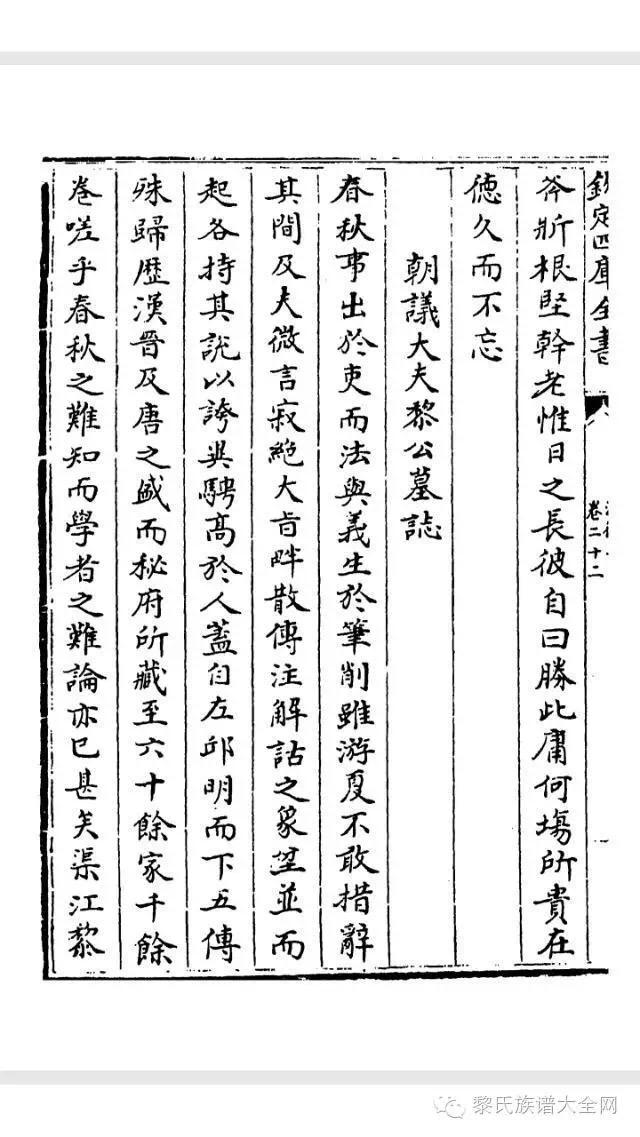 欽定四庫全書
卷二十二
斧斨根堅幹老惟日之長彼自曰勝此庸何塲所貴在
徳久而不忘
朝議大夫黎公墓誌
春秋事出於吏而法與義生於筆削雖游夏不敢措辭
其間及夫微言寂絶大㫖畔散傳注解詁之㒸望並而
起各持其說以誇與騁髙於人蓋自左邱明而下五傳
殊歸歴漢晉及唐之盛而秘府所藏至六十餘家千餘
巻嗟乎春秋之難知而學者之難論亦已甚矣渠江黎
黎氏族谱大全网